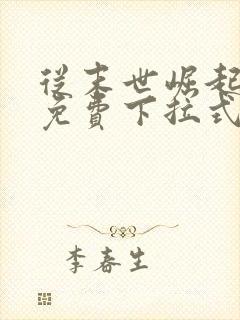 從末世崛起
免費下拉式
李春生